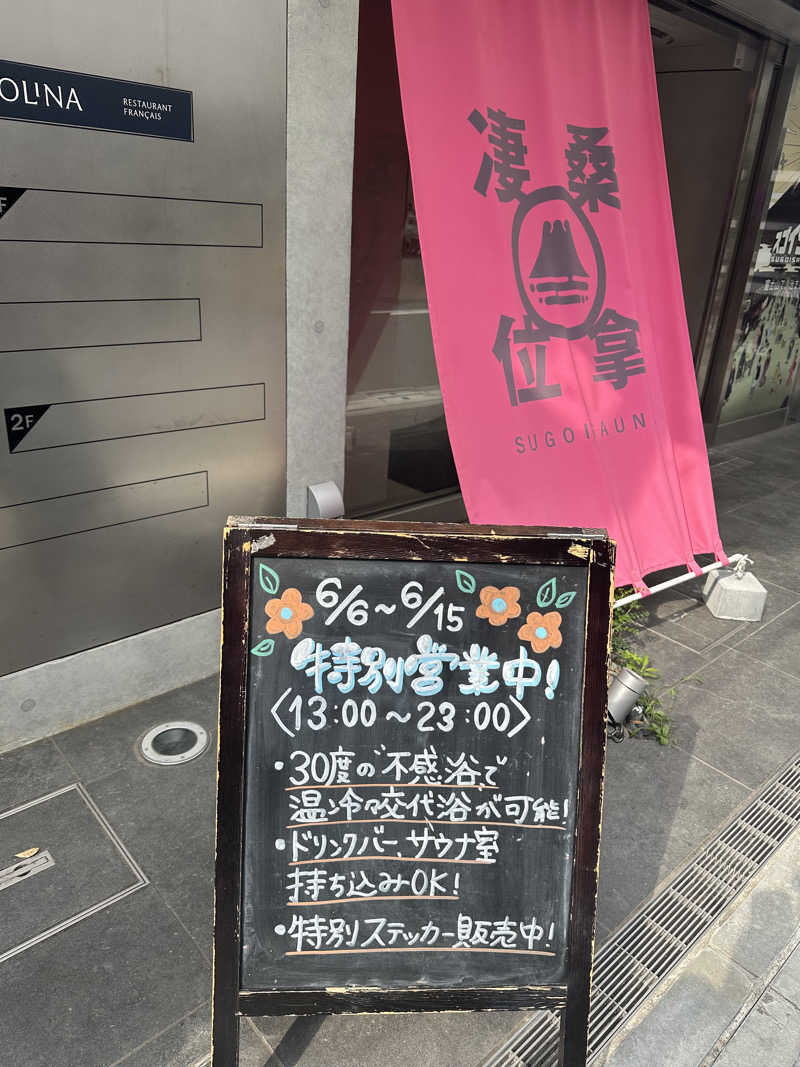 OLINA
RESTAURANT
FRANÇAIS
F
2F
凄桑
位拿
SUGOISAUNA
スゴイ
SUGOISA
6/6~6/15
特別営業中!
〈13:00~23:00〉
・30度の不感浴で
温冷交代浴が可能!
・ドリンクバー、サウナ室
持ち込みOK!
・特別ステッカー販売中!